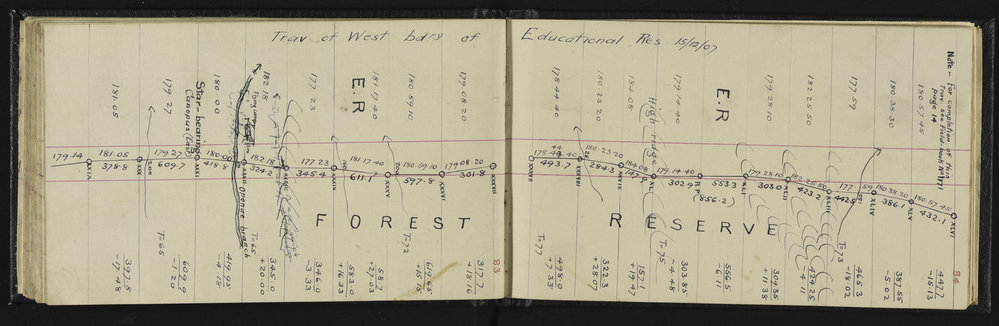 Trav. of West bdry of Educational Res 15/12/07
Note - For completion of this
Trav. see Field book
page 14
181·05
179·27
Star-bearing
Canopus
180 00
182 18
177 23
E.R
181·17·40
180·59·10
179·08·20
178·44·40
180·23·20
184·08
High ridge
179·14·40
E.R
179·28·10
182·25·50
177·59
180·38·30
180·57·45
179·14
181·05
378·8
179·27
609·7
180·00
418·8
182·18
324·2
177·23
345·4
181·17·40
611·1
180·59·10
597·8
179·08·20
301·8
178·44·40
493·7
180·23·20
284·3
184·08
147·9
179·14·40
302·9
(856·2)
553·3
179·28·10
303·0
182·25·50
423·2
177 59
442·5
180·38·30
386·1
180·57·45
432·1
XXIX
XXX
XXXI
XXXIV
XXXV
XXXVI
XXXVII
XL
R.P
XLI
XLII
XLIII
XLIV
XLV
XLVI
Oponae branch
FOREST RESERVE
T-65
T-65
T-72
T-77
T-75
T-73
397·5
-17·48
609·9
-1·20
419·05
-4·78
345·0
+20·00
346·0
-3·33
583·0
+16·33
58·7
+27·03
619·65
+15·15
317·7
+18·16
83
498·0
+7·33
322·3
+28·07
155·1
+19·47
303·85
-4·48
556·5
-6·11
309·35
+11·38
424·25
-4·11
465·3
-18·02
387·55
-5·02
447·7
-15·13
84